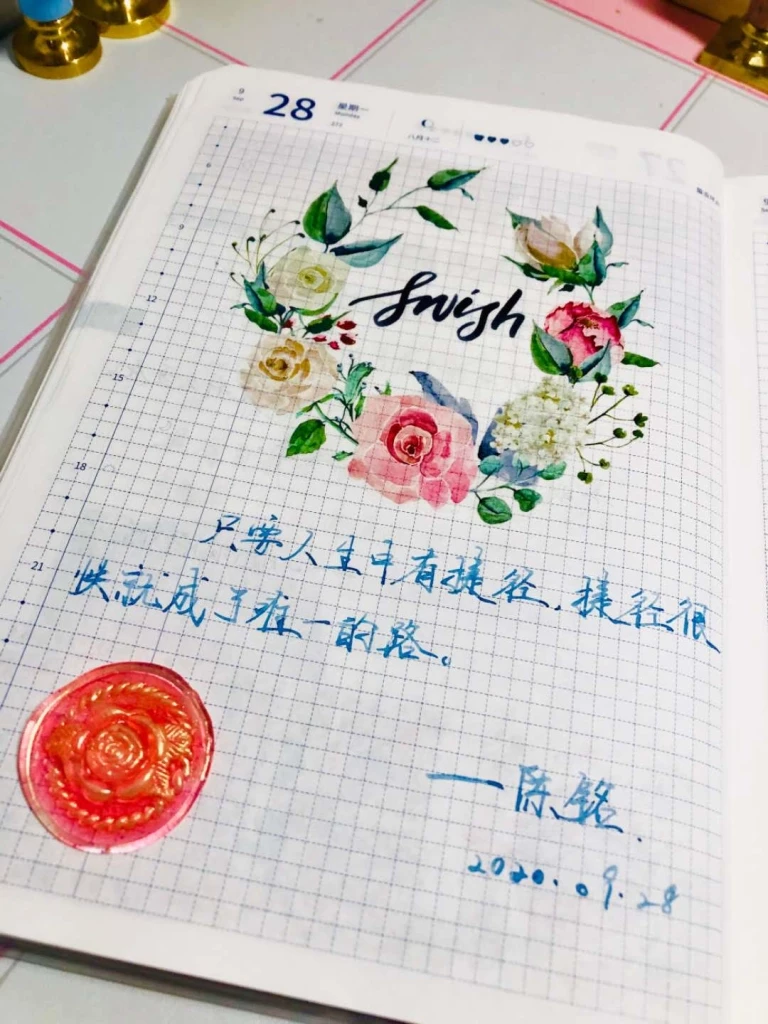 9
Sep
28
星期一
Monday
八月十二
27
6
9
Swish
12
15
18
21
只要人生中有捷径,捷径很
快就成了唯一的路。
——陈铭.
2020.09.28